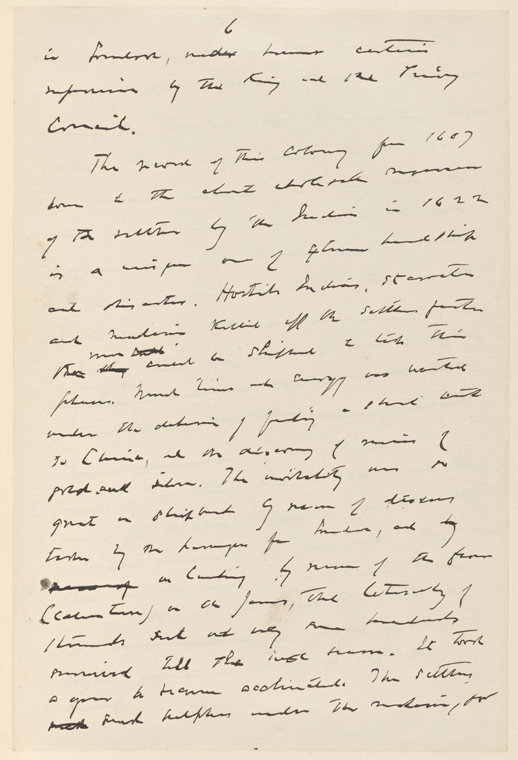 6
in London, under certain
supervision by the King and the Privy
Council.
The record of this Colony from 1607
down to the almost wholesale massacre
of the settlers by the Indians in 1622
is a unique one of extreme hardship
and disaster. Hostile Indians, starvation
and malaria killed off the settlers faster
than could be shipped to take their
places. Much time and energy was wasted
under the delusion of finding a short cut
to China, and the discovery of mines of
gold and silver. The mortality was so
great on shipboard by reason of diseases
taken by the passengers from London, and by
on landing by reason of the fever
(calenture) on the James, that literally of
thousands sent out only some hundreds
survived till the next season. It took
a year to become acclimated. The settlers
sank helpless under the malaria, for